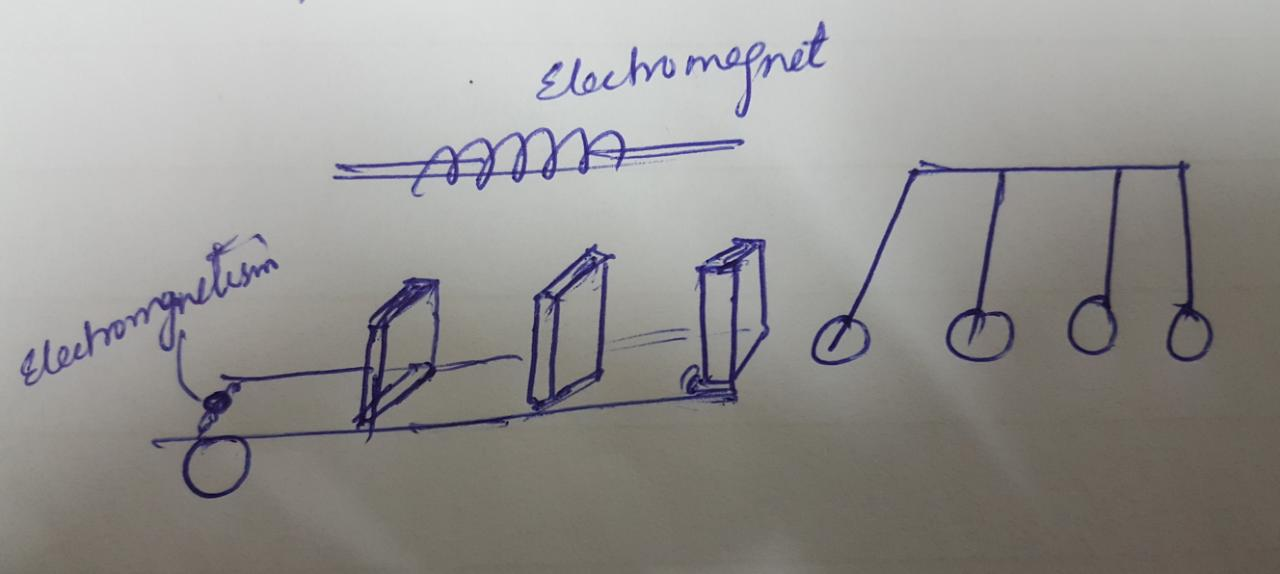 Electromegnet
Electromgnetism